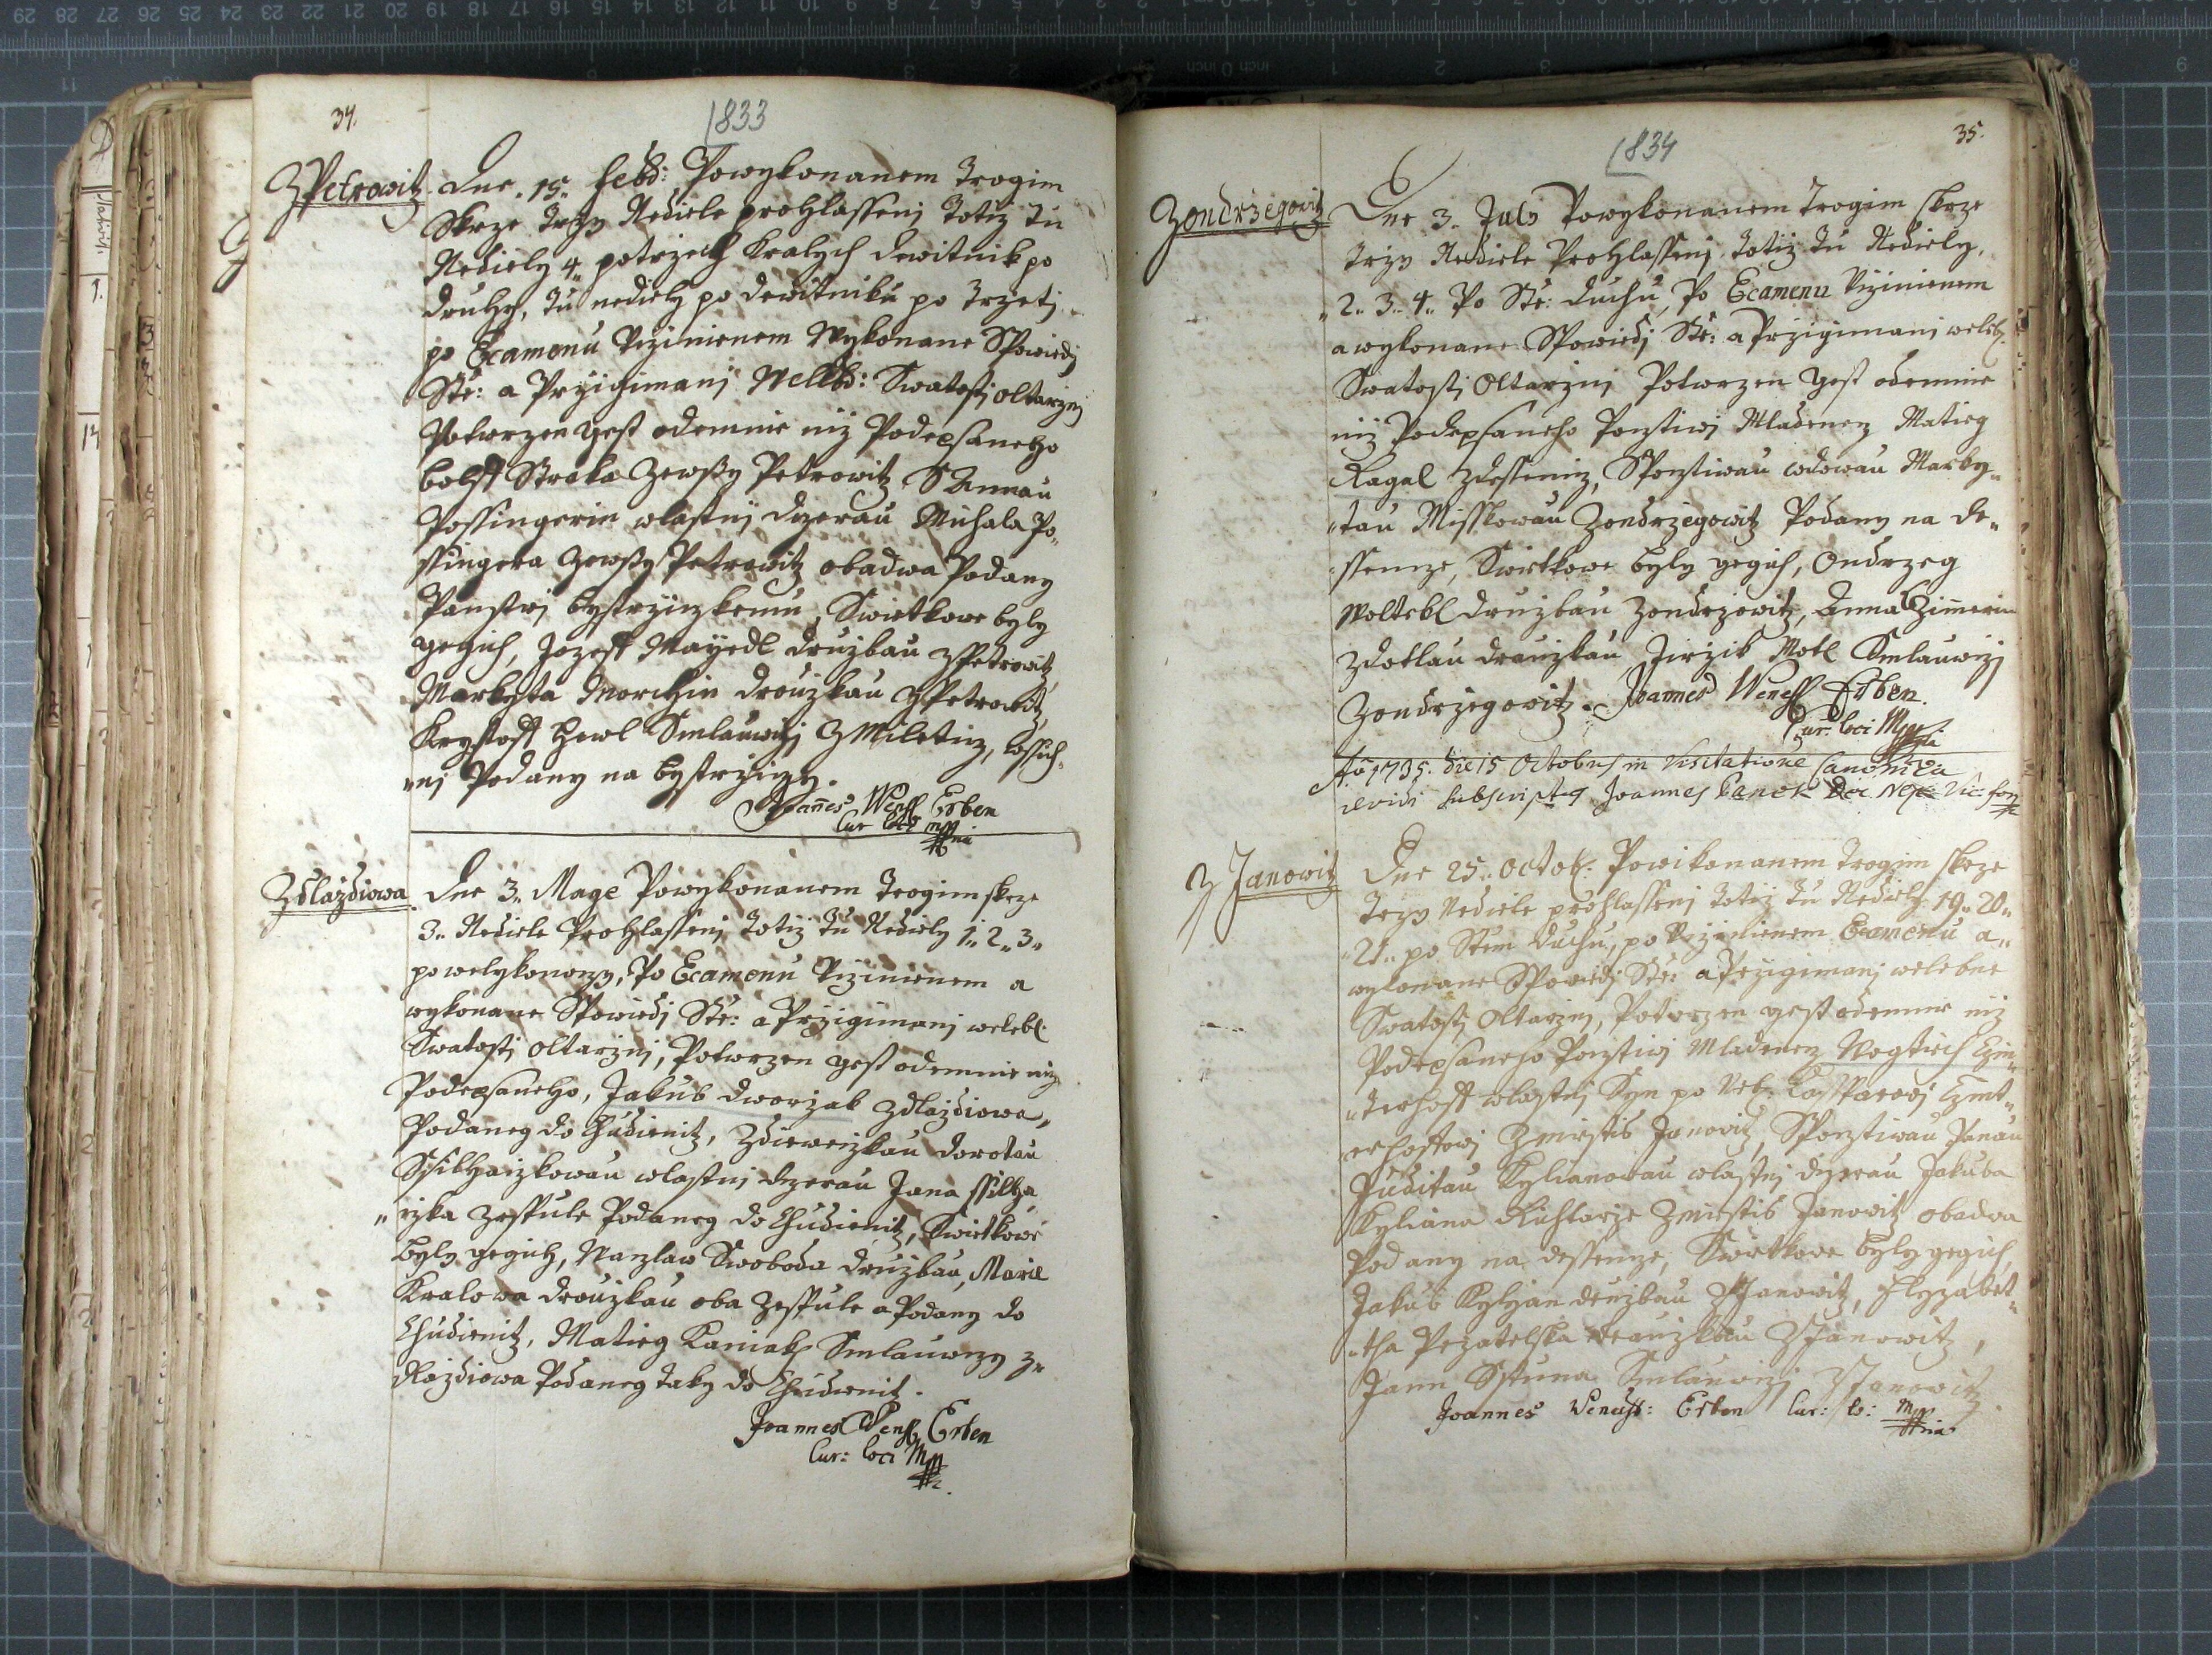 34.
1833
Z Petrowitz
Dne. 15. Febr: Powykonanem Trogim
Skrze Trzy Nediele prohlasseni Totiz Tu
Nediely 4. potrzech Kralych dewitnik po
druhy, Tu nediely po dewitniku po Trzeti
po Examenu Uziniene​m Wykonane Spowiedi
Ste: a Przigimani Welleb: Swatosti oltarzni
Potwrzen gest odemnie niz Podepsaneho
Straka Zewssy Petrowitz S Annau
Possingerin wlastni dczerau Michala Po„
ssingera Zewssy Petrowitz obadwa Podany
Panstwi bystrziczkemu, Swietkowe byly
gegich, Jozeff Mayedl druzbau z Petrowitz
Markyta Morchin drouzkau z Petrowitz,
Krystoff Hawl Smlauwczi Z Miletitz, wssich„
„ni Podany na bystrziczy.
Joannes Wencsl Erben
Cur loci mpp
Zdlazdiowa
Dne 3. Mage Powykonanem Trogim skrze
3. Nediele Prohlasseni Totiz Tu Nediely 1. 2. 3.
po welykonoczy, Po Examenu Uzinienem a
wykonane Spowiedi Ste: a Przigimani weleb:
Swatosti oltarzni, Potwrzen gest odemnie niz
Podepsaneho, Jakub dworzak Zdlazdiowa„
Podaneg do Chudienitz, Zdieweczkau dorotau
Ssilhaczkowau wlastni dczerau Jana Ssilha„
„czka Zesspule Podaneg do Chudienitz, Swietkowe
byly gegich, Wanzlaw Swoboda druzbau, Marie
Kralowa drouzkau oba Zesspule a Podany do
Chudienitz, Matieg Kaniak Smlauwczy z„
dlazdiowa Podaneg taky do Chudienitz.
Joannes Wencsl Erben
Cur: loci Mpp
35.
1834
Zondrzegowitz
Dne 3. July Powykonanem Trogim skrze
Trzy Nediele Prohlasseni Totiz Tu Nediely,
„2. 3. 4. Po Ste: duchu, Po Examenu Uzinienem
a wykonane Spowiedi Ste: a Przigimani weleb:
Swatosti Oltarzni Potwrzen gest odemnie
niz Podepsaneho Poczstiwi Mladenecz Matieg
Ragal Zdesseniz, Spoczstiwau wdowau Marky„
„tau Misskowau Zondrzegowitz Podany na de„
ssenicze, Swietkowe byly gegich, Ondrzeg
Woltebl druzbau Zondrzowitz, Anna Zimerin
Zdotlau drouzkau Jirzik Motl Smlauwczi
Zondrzegowitz. Joannes Wencsl Erben.
Cur. loci Mpp
Ao 1735. die 15 Octobris in Visitatione Canonica
revidi subscriptus Joannes
Z Janowitz
Dne 25. Octob: Powikonanem Trogim skrze
Trzy Nediele prohlasseni Totiz Tu Nediely 19. 20.
„21. po Stem duchu, po Uzinienem Examenu a„
wykonane Spowiedi Ste: a Przigimani welebne
Swatosti Oltarzni, Potwrzen gest odemnie niz
Podepsaneho Poczstiwi Mladenecz Wogtiech Czim„
„terhoff wlastni Syn po Neb: Kassparowi Czimt„
erhoffowi Zmiestis Janowitz, Spoczstiwau Panau
Juditau Kylianowau wlastni dczerau Jakuba
Kyliana Richtarze Zmiestis Janowitz obadwa
Podany na dessenicze, Swietkowe byly gegich,
Jakub Kylyan druzbau Z Janowitz, Elyzabet„
„tha drauzkau Z Janowitz,
Jann Sstuna Smlauwczi Z Janowitz
Joannes Wencsl: Erben Cur: lo: mpp